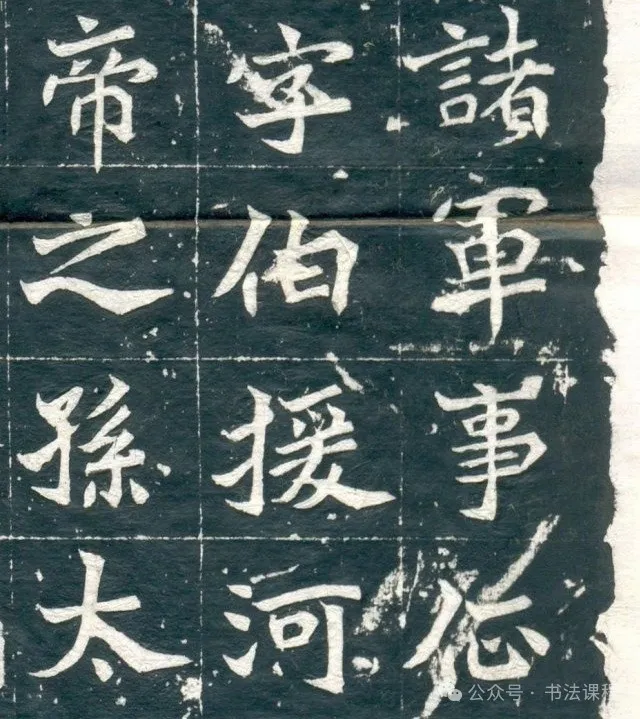 諸軍事征
字伯援河
帝之孫太
公众号 · 书法课程